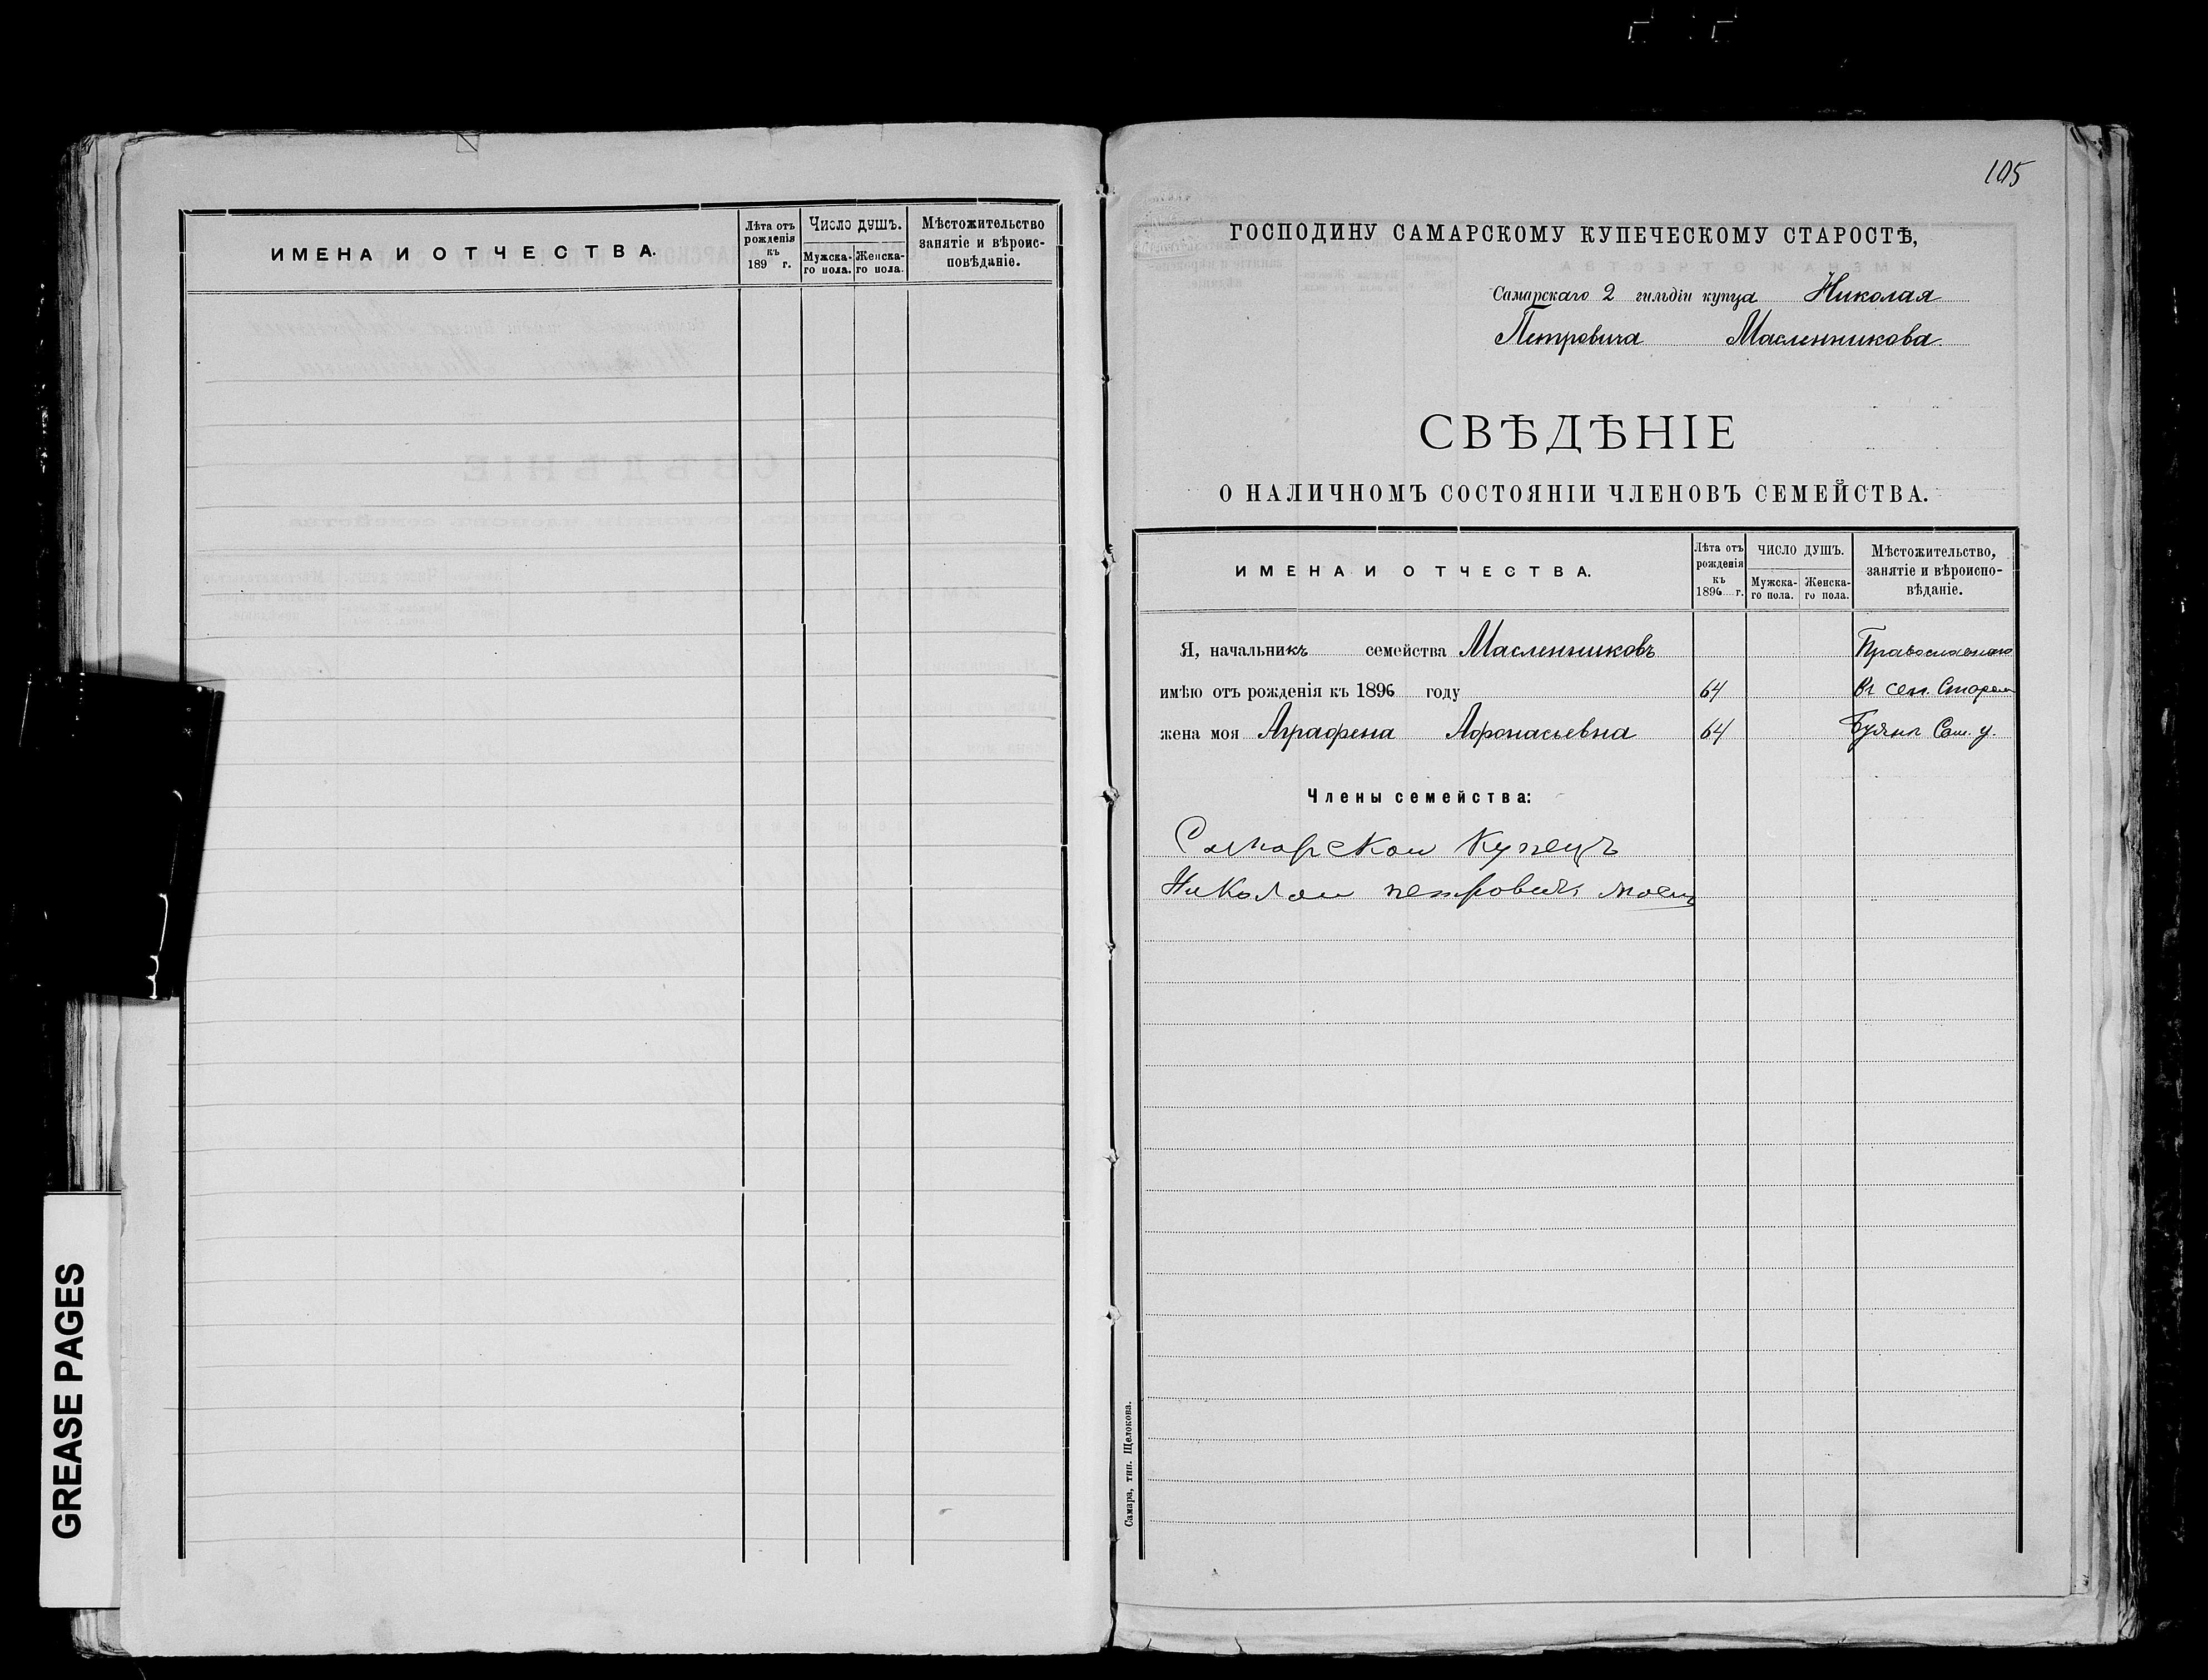 ИМЕНА И ОТЧЕСТВА.
Лѣта отъ рожденія къ 189 г.
Число душъ.
Мужска-го пола.
Женска-го пола.
Мѣстожительство занятіе и вѣроис-повѣданіе.
105
ГОСПОДИНУ САМАРСКОМУ КУПЕЧЕСКОМУ СТАРОСТѢ,
Самарскаго 2 гильдіи купца Николая
Петровича Масленникова.
СВѢДѢНІЕ
О НАЛИЧНОМЪ СОСТОЯНІИ ЧЛЕНОВЪ СЕМЕЙСТВА.
ИМЕНА И ОТЧЕСТВА.
Лѣта отъ рожденія къ 1896 г.
ЧИСЛО ДУШЪ.
Мужска-го пола.
Женска-го пола.
Мѣстожительство, занятіе и вѣроиспо-вѣданіе.
Я, начальникъ семейства Масленниковъ Православнаго
имѣю отъ рожденія къ 1896 году 64 Въ сел. Старом
жена моя Аграфена Афонасьевна 64 Буянѣ Сам. у.
Члены семейства:
Самарскои Купецъ
Николаи петровичъ
Самара, тип. Щелокова.
GREASE PAGES